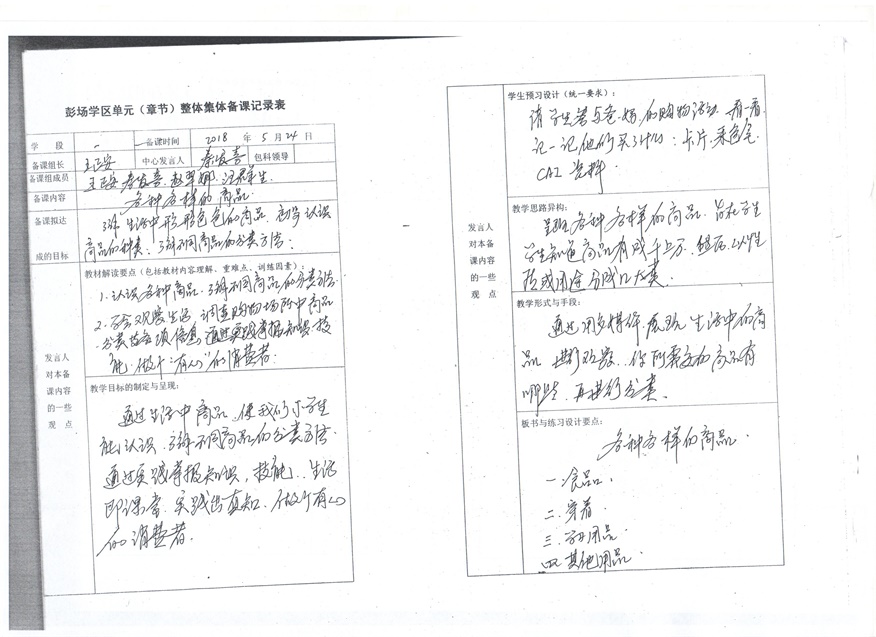 彭场学区单元（章节）整体集体备课记录表
学 段 一 备课时间 2018 年 5 月 24 日
备课组长 王正安 中心发言人 秦发喜 包科领导
备课组成员 王正安 秦发喜
备课内容 各种各样的商品
备课拟达
成的目标
了解生活中形形色色的商品，初步认识
商品的种类；了解不同商品的分类方法；
教材解读要点（包括教材内容理解、重难点、训练因素）：
1. 认识各种商品，了解不同商品的分类方法
2. 学会观察生活，调查购物场所中商品
分类及各项信息，通过实践掌握知识、技
能，做个“有心”的消费者.
发言人
对本备
课内容
的一些
观 点
教学目标的制定与呈现：
通过生活中商品，使我们小学生
能认识、了解不同商品的分类方法.
通过实践掌握知识，技能，生活
即课堂，实践出真知，做个有心
的消费者.
学生预习设计（统一要求）：
请学生善与爸、妈的购物活动，看一看
记一记他们买了什么：卡片、彩色笔
CAI 资料.
发言人
对本备
课内容
的一些
观 点
教学思路异构：
各种各样的商品，旨在学生
学生知道商品有成千上万，然后以性
质或用途分成几大类.
教学形式与手段：
通过用多媒体展现生活中的商
品，进行欣赏，你所喜欢的商品有
哪些，再进行分类.
板书与练习设计要点：
各种各样的商品.
一.食品.
二.穿着.
三.学习用品.
四.其他用品.